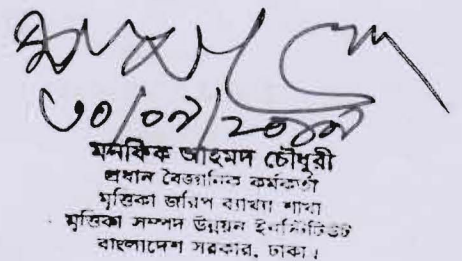 ৩০/০৭/২০০৭
আহমদ চৌধুরী
প্রধান বৈজ্ঞানিক কর্মকর্তা
মৃত্তিকা জরিপ ব্যাখ্যা শাখা
মৃত্তিকা সম্পদ উন্নয়ন ইনস্টিটিউট
বাংলাদেশ সরকার, ঢাকা।